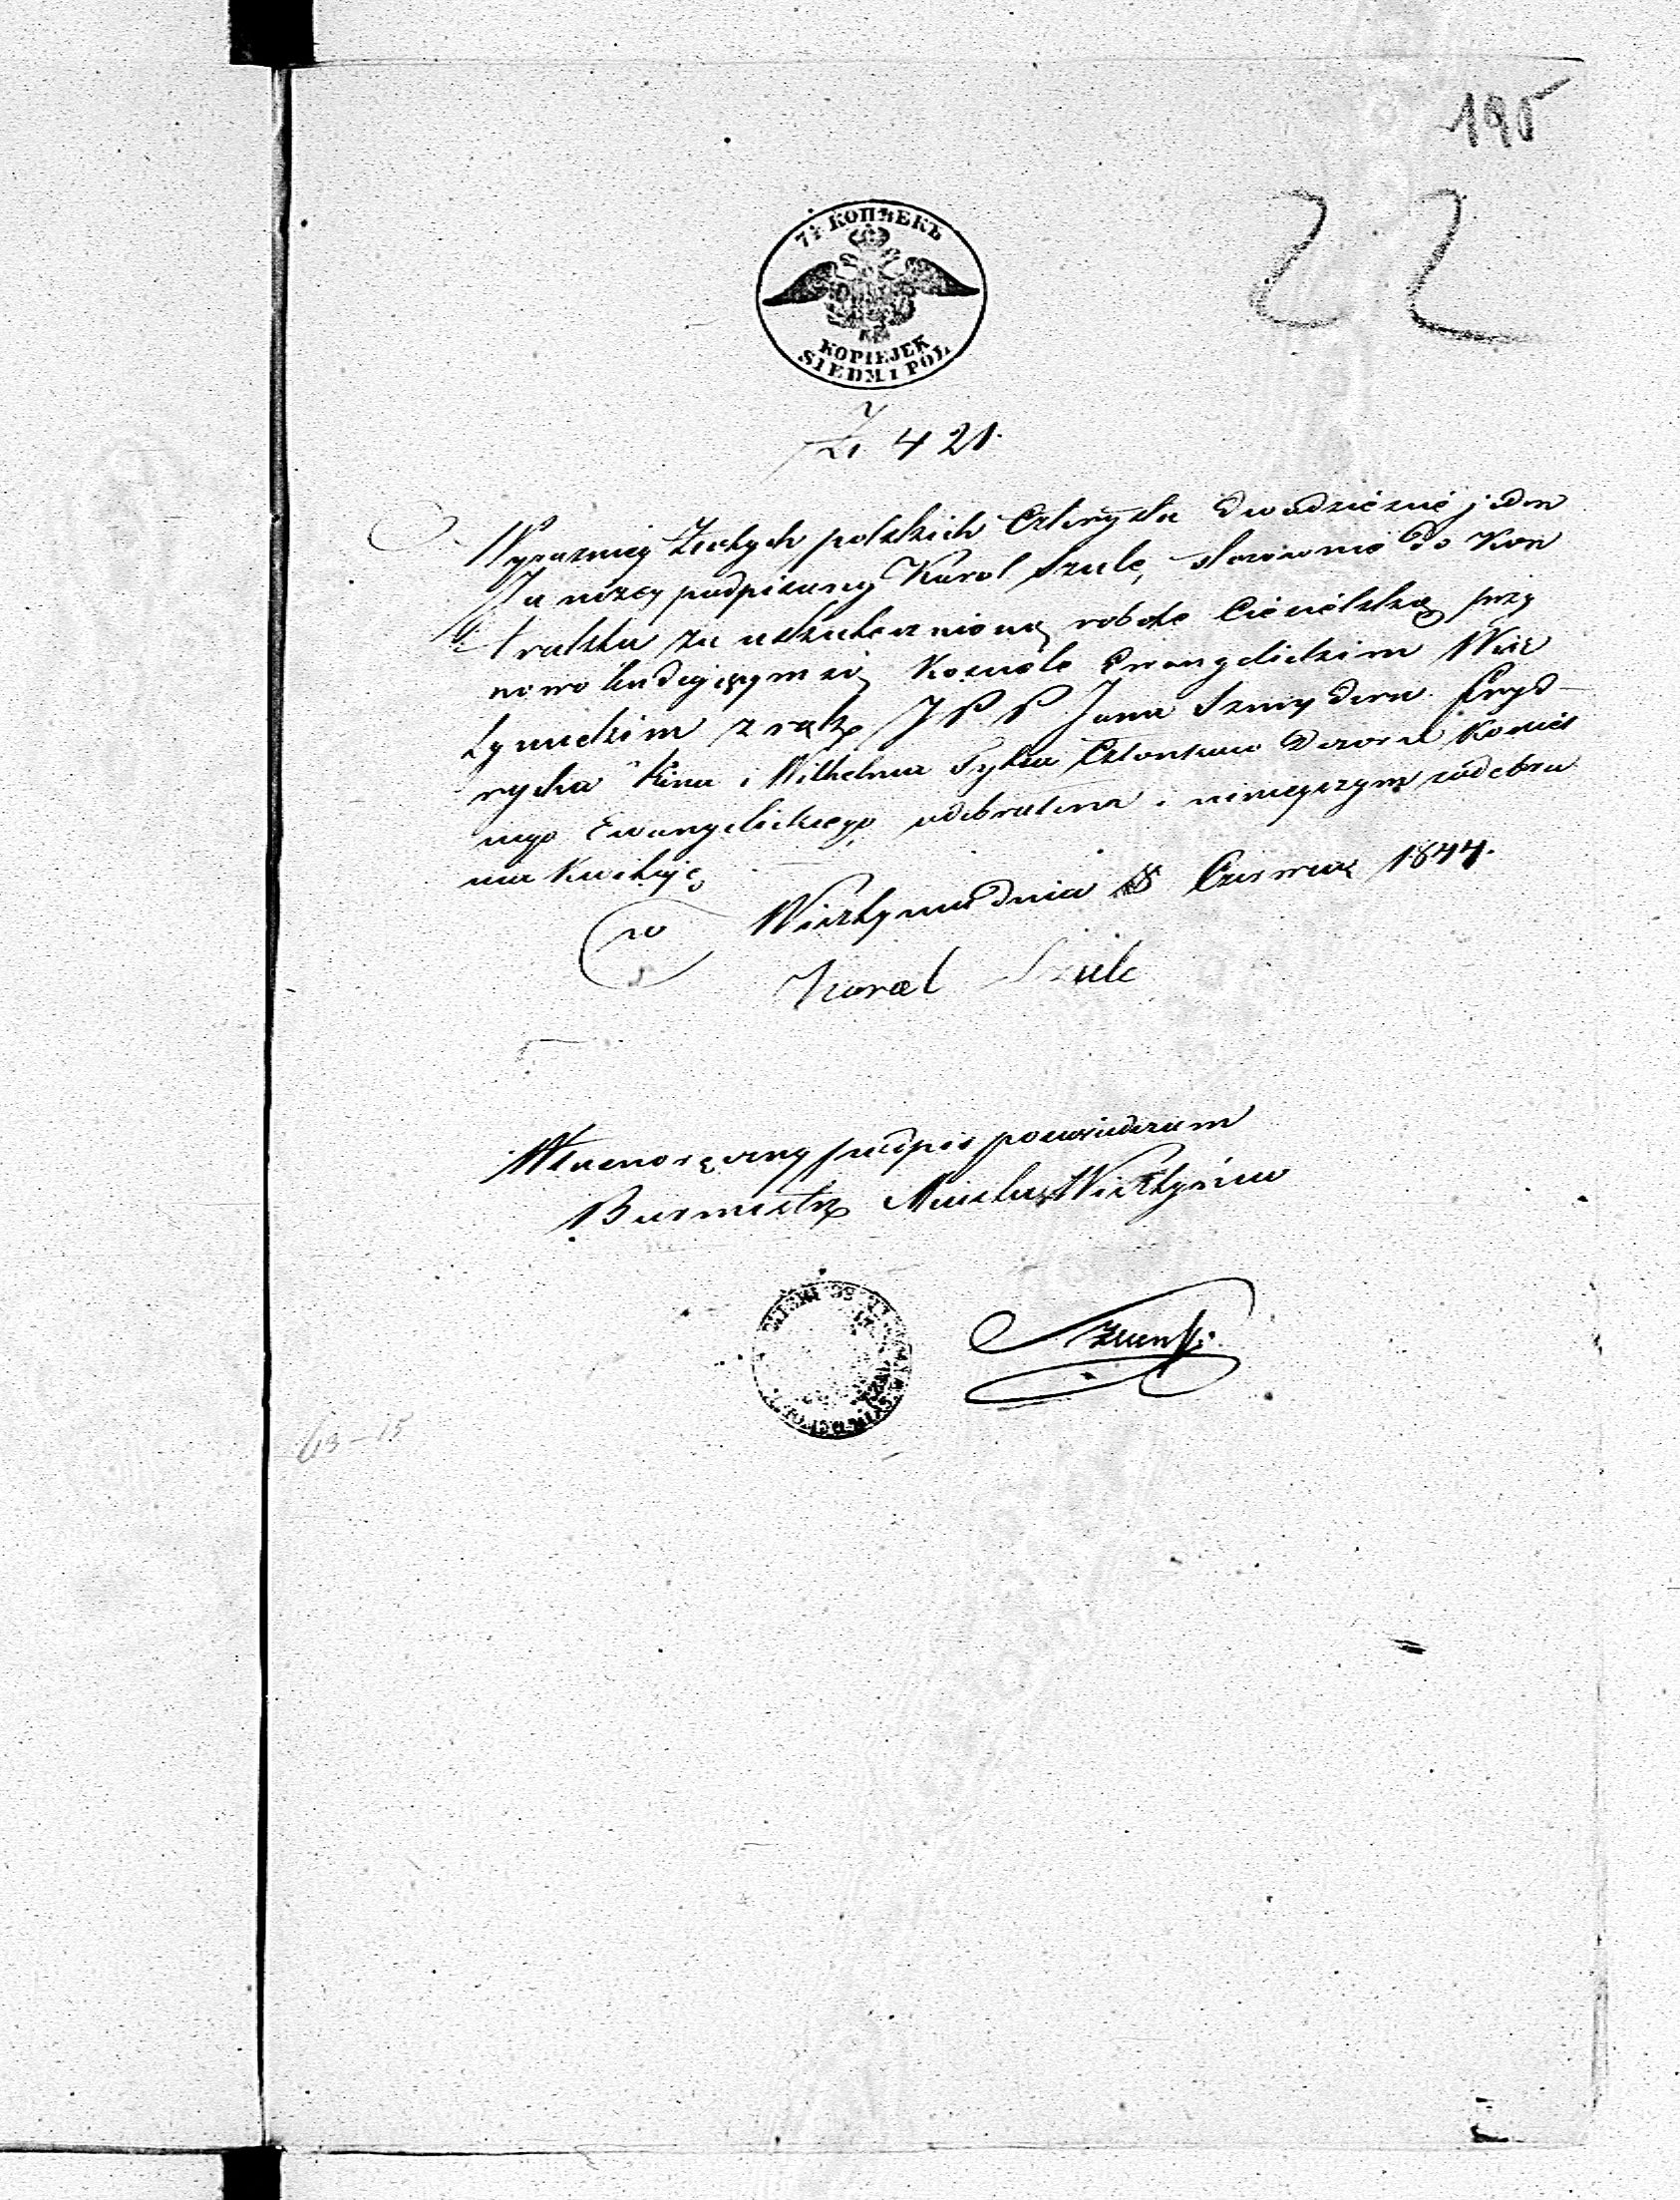 195
22
7½ КОПѢЕКЪ
KOPIEJEK
SIEDM I POŁ
Zł 421.
Wyrazniey Złotych polskich Czterysta dwadziescie jeden
Ja nizey podpisany Karol Szulc, stosownie do Kon
traktu za uskutecznioną robotę Ciesielską przy
nowo budującym się Kosciele Ewangelickim Wisz
tynieckim z rąk JPP Jana Szneydera Fryd-
rycha Kina i Wilhelma Członkow Dozoru Kosciel
nego Ewangelickiego odebrałem i ninieyszym z odebra
nia Kwituję
Wisztyniec dnia Czerwca 1844.
Karol Szulc
Własnoręczny podpis poswiadczam
Burmistrz Miasta Wisztynca